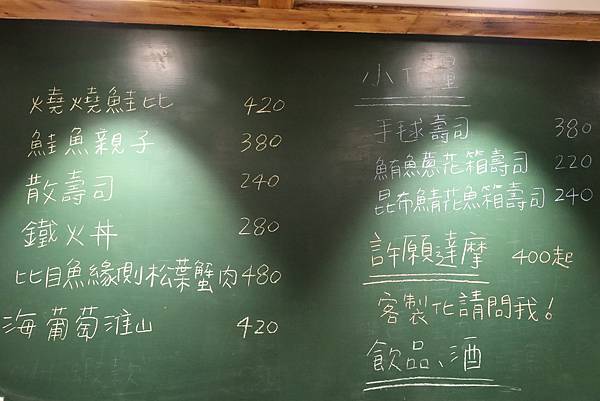 燒燒鮭比 420
鮭魚親子 380
散壽司 240
鐵火丼 280
比目魚緣側松葉蟹肉 480
海葡萄淮山 420
手毬壽司 380
鮪魚蔥花箱壽司 220
昆布鯖花魚箱壽司 240
許願達摩 400起
客製化請問我！
飲品、酒